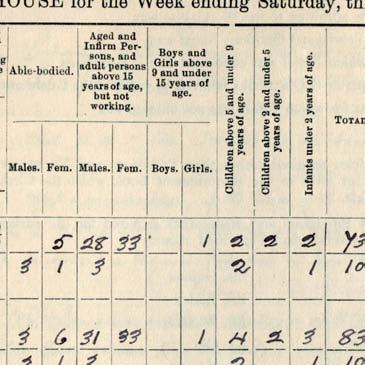 HOUSE for the Week ending Saturday, th
Able-bodied.
Aged and
Infirm Per-
sons, and
adult persons
above 15
years of age,
but not
working.
Boys and
Girls above
9 and under
15 years of
age.
Children above 5 and under 9
years of age.
Children above 2 and under 5
years of age.
Infants under 2 years of age.
TOTA
Males. Fem. Males. Fem. Boys. Girls.
5 28 33 1 2 2 2 73
3 1 3 2 1 10
3 6 31 33 1 4 2 3 83